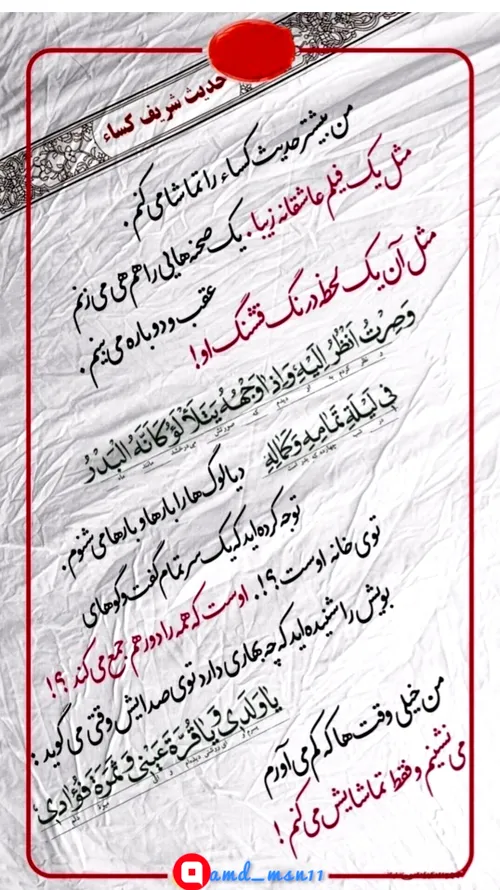 حدیث شریف کساء
من بیشتر حدیث کساء را تماشا می کنم.
مثل یک فیلم عاشقانه زیبا. یک صحنه هایی را هم هی می زنم
عقب و دوباره می بینم.
مثل آن یک لحظه درنگ قشنگ او!
وَصِرْتُ اَنْظُرُ اِلَیْهِ وَاِذا وَجْهُهُ یَتَلَأْلَؤُ کَاَنَّهُ الْبَدْرُ
فی لَیْلَةِ تَمامِهِ وَکَمالِهِ
دیالوگ ها را بارها و بارها می شنوم.
توجه کرده اید که یک سر تمام گفت و گوهای
توی خانه اوست؟!. اوست که همه را دور هم جمع می کند؟!
بویش را شنیده اید که چه بهاری دارد توی صدایش وقتی می گوید:
یا وَلَدی وَ یا قُرَّةَ عَیْنی وَ ثَمَرَةَ فُؤادی
من خیلی وقت ها که کم می آورم
می نشینم و فقط تماشایش می کنم!
amd_msn11